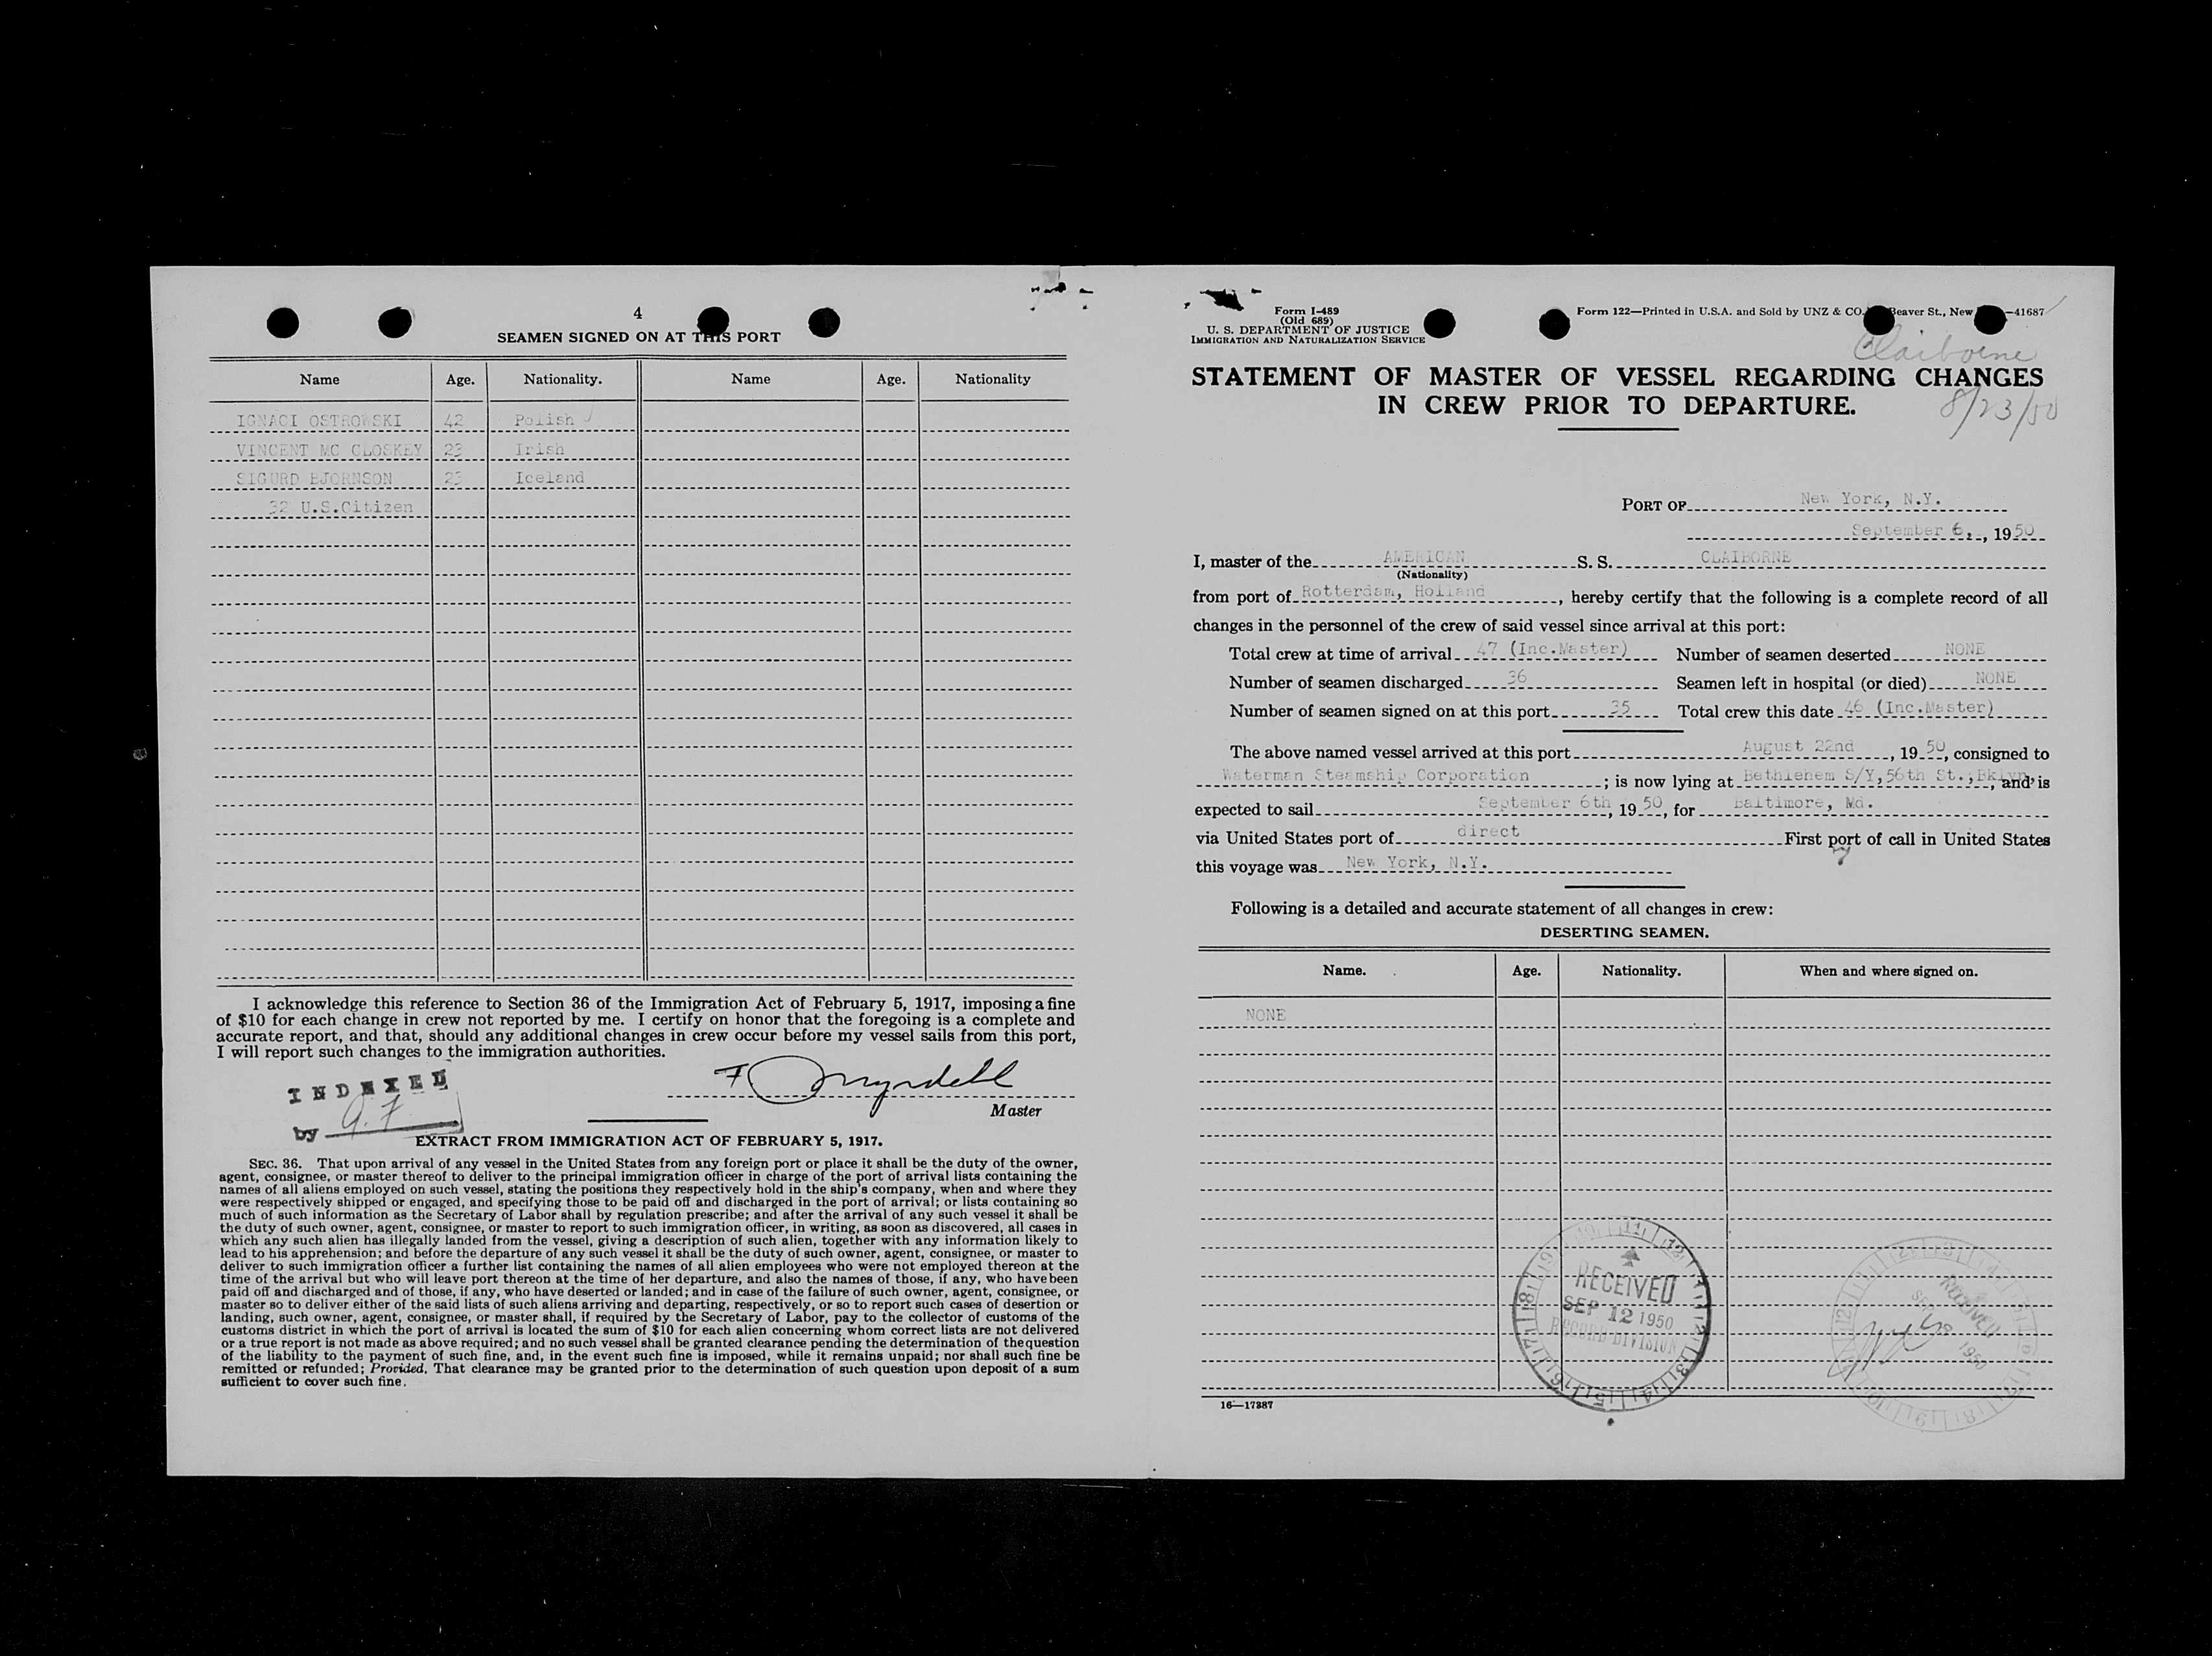 4
SEAMEN SIGNED ON AT THIS PORT
Name Age. Nationality. Name Age. Nationality
IGNACI OSTROWSKI 42 Polish
VINCENT MC CLOSKEY Irish
SIGURD BJORNSON Iceland
32 U.S.Citizen
I acknowledge this reference to Section 36 of the Immigration Act of February 5, 1917, imposing a fine
of $10 for each change in crew not reported by me. I certify on honor that the foregoing is a complete and
accurate report, and that, should any additional changes in crew occur before my vessel sails from this port,
I will report such changes to the immigration authorities.
INDEXED
by
Master
EXTRACT FROM IMMIGRATION ACT OF FEBRUARY 5, 1917.
SEC. 36. That upon arrival of any vessel in the United States from any foreign port or place it shall be the duty of the owner,
agent, consignee, or master thereof to deliver to the principal immigration officer in charge of the port of arrival lists containing the
names of all aliens employed on such vessel, stating the positions they respectively hold in the ship's company, when and where they
were respectively shipped or engaged, and specifying those to be paid off and discharged in the port of arrival; or lists containing so
much of such information as the Secretary of Labor shall by regulation prescribe; and after the arrival of any such vessel it shall be
the duty of such owner, agent, consignee, or master to report to such immigration officer, in writing, as soon as discovered, all cases in
which any such alien has illegally landed from the vessel, giving a description of such alien, together with any information likely to
lead to his apprehension; and before the departure of any such vessel it shall be the duty of such owner, agent, consignee, or master to
deliver to such immigration officer a further list containing the names of all alien employees who were not employed thereon at the
time of the arrival but who will leave port thereon at the time of her departure, and also the names of those, if any, who have been
paid off and discharged and of those, if any, who have deserted or landed; and in case of the failure of such owner, agent, consignee, or
master so to deliver either of the said lists of such aliens arriving and departing, respectively, or so to report such cases of desertion or
landing, such owner, agent, consignee, or master shall, if required by the Secretary of Labor, pay to the collector of customs of the
customs district in which the port of arrival is located the sum of $10 for each alien concerning whom correct lists are not delivered
or a true report is not made as above required; and no such vessel shall be granted clearance pending the determination of the question
of the liability to the payment of such fine, and, in the event such fine is imposed, while it remains unpaid; nor shall such fine be
remitted or refunded; Provided, That clearance may be granted prior to the determination of such question upon deposit of a sum
sufficient to cover such fine.
Form I-489
(Old 689)
U. S. DEPARTMENT OF JUSTICE
IMMIGRATION AND NATURALIZATION SERVICE
Form 122—Printed in U.S.A. and Sold by UNZ & CO. Beaver St., New —41687
Claiborne
STATEMENT OF MASTER OF VESSEL REGARDING CHANGES
IN CREW PRIOR TO DEPARTURE.
8/23/50
PORT OF New York, N.Y.
September 6,, 1950
I, master of the AMERICAN S. S. CLAIBORNE
(Nationality)
from port of Rotterdam, Holland, hereby certify that the following is a complete record of all
changes in the personnel of the crew of said vessel since arrival at this port:
Total crew at time of arrival 47 (Inc.Master) Number of seamen deserted NONE
Number of seamen discharged 36 Seamen left in hospital (or died) NONE
Number of seamen signed on at this port 35 Total crew this date 46 (Inc.Master)
The above named vessel arrived at this port August 22nd, 1950, consigned to
Waterman Steamship Corporation; is now lying at Bethlehem S/Y,56th St.,Bklyn, and is
expected to sail September 6th, 1950, for Baltimore, Md.
via United States port of direct First port of call in United States
this voyage was New York, N.Y.
Following is a detailed and accurate statement of all changes in crew:
DESERTING SEAMEN.
Name. Age. Nationality. When and where signed on.
NONE
RECEIVED
SEP 12 1950
RECORD DIVISION
RECEIVED
1950
16—17387